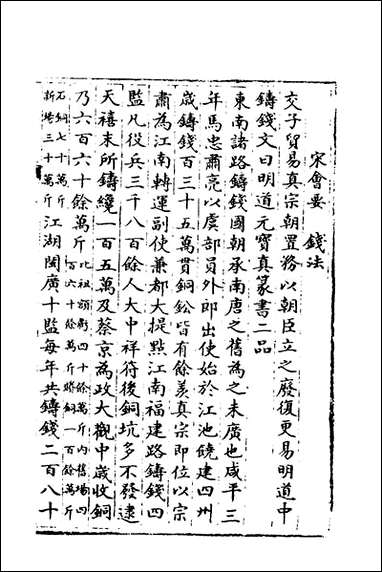 宋會要　錢法
交子貿易真宗朝置務以朝臣立之廢復更易明道中
鑄錢文曰明道元寳真篆書二品
東南諸路鑄錢國朝承南唐之舊為之未廣也咸平三
年馬忠肅亮以虞部員外郎出使始於江池饒建四州
歲鑄錢百三十五萬貫銅鈆皆有餘羡真宗即位以宗
肅為江南轉運副使兼都大提點江南福建路鑄錢四
監凡役兵三千八百餘人大中祥符後銅坑多不發逮
天禧末所鑄纔一百五萬及蔡京為政大觀中歲收銅
乃六百六十餘萬斤比祖額虧四十餘萬斤内舊場四
百六十餘萬斤膽銅一百餘萬斤
石銅七十萬斤
新塲三十萬斤江湖閩廣十監每年共鑄錢二百八十